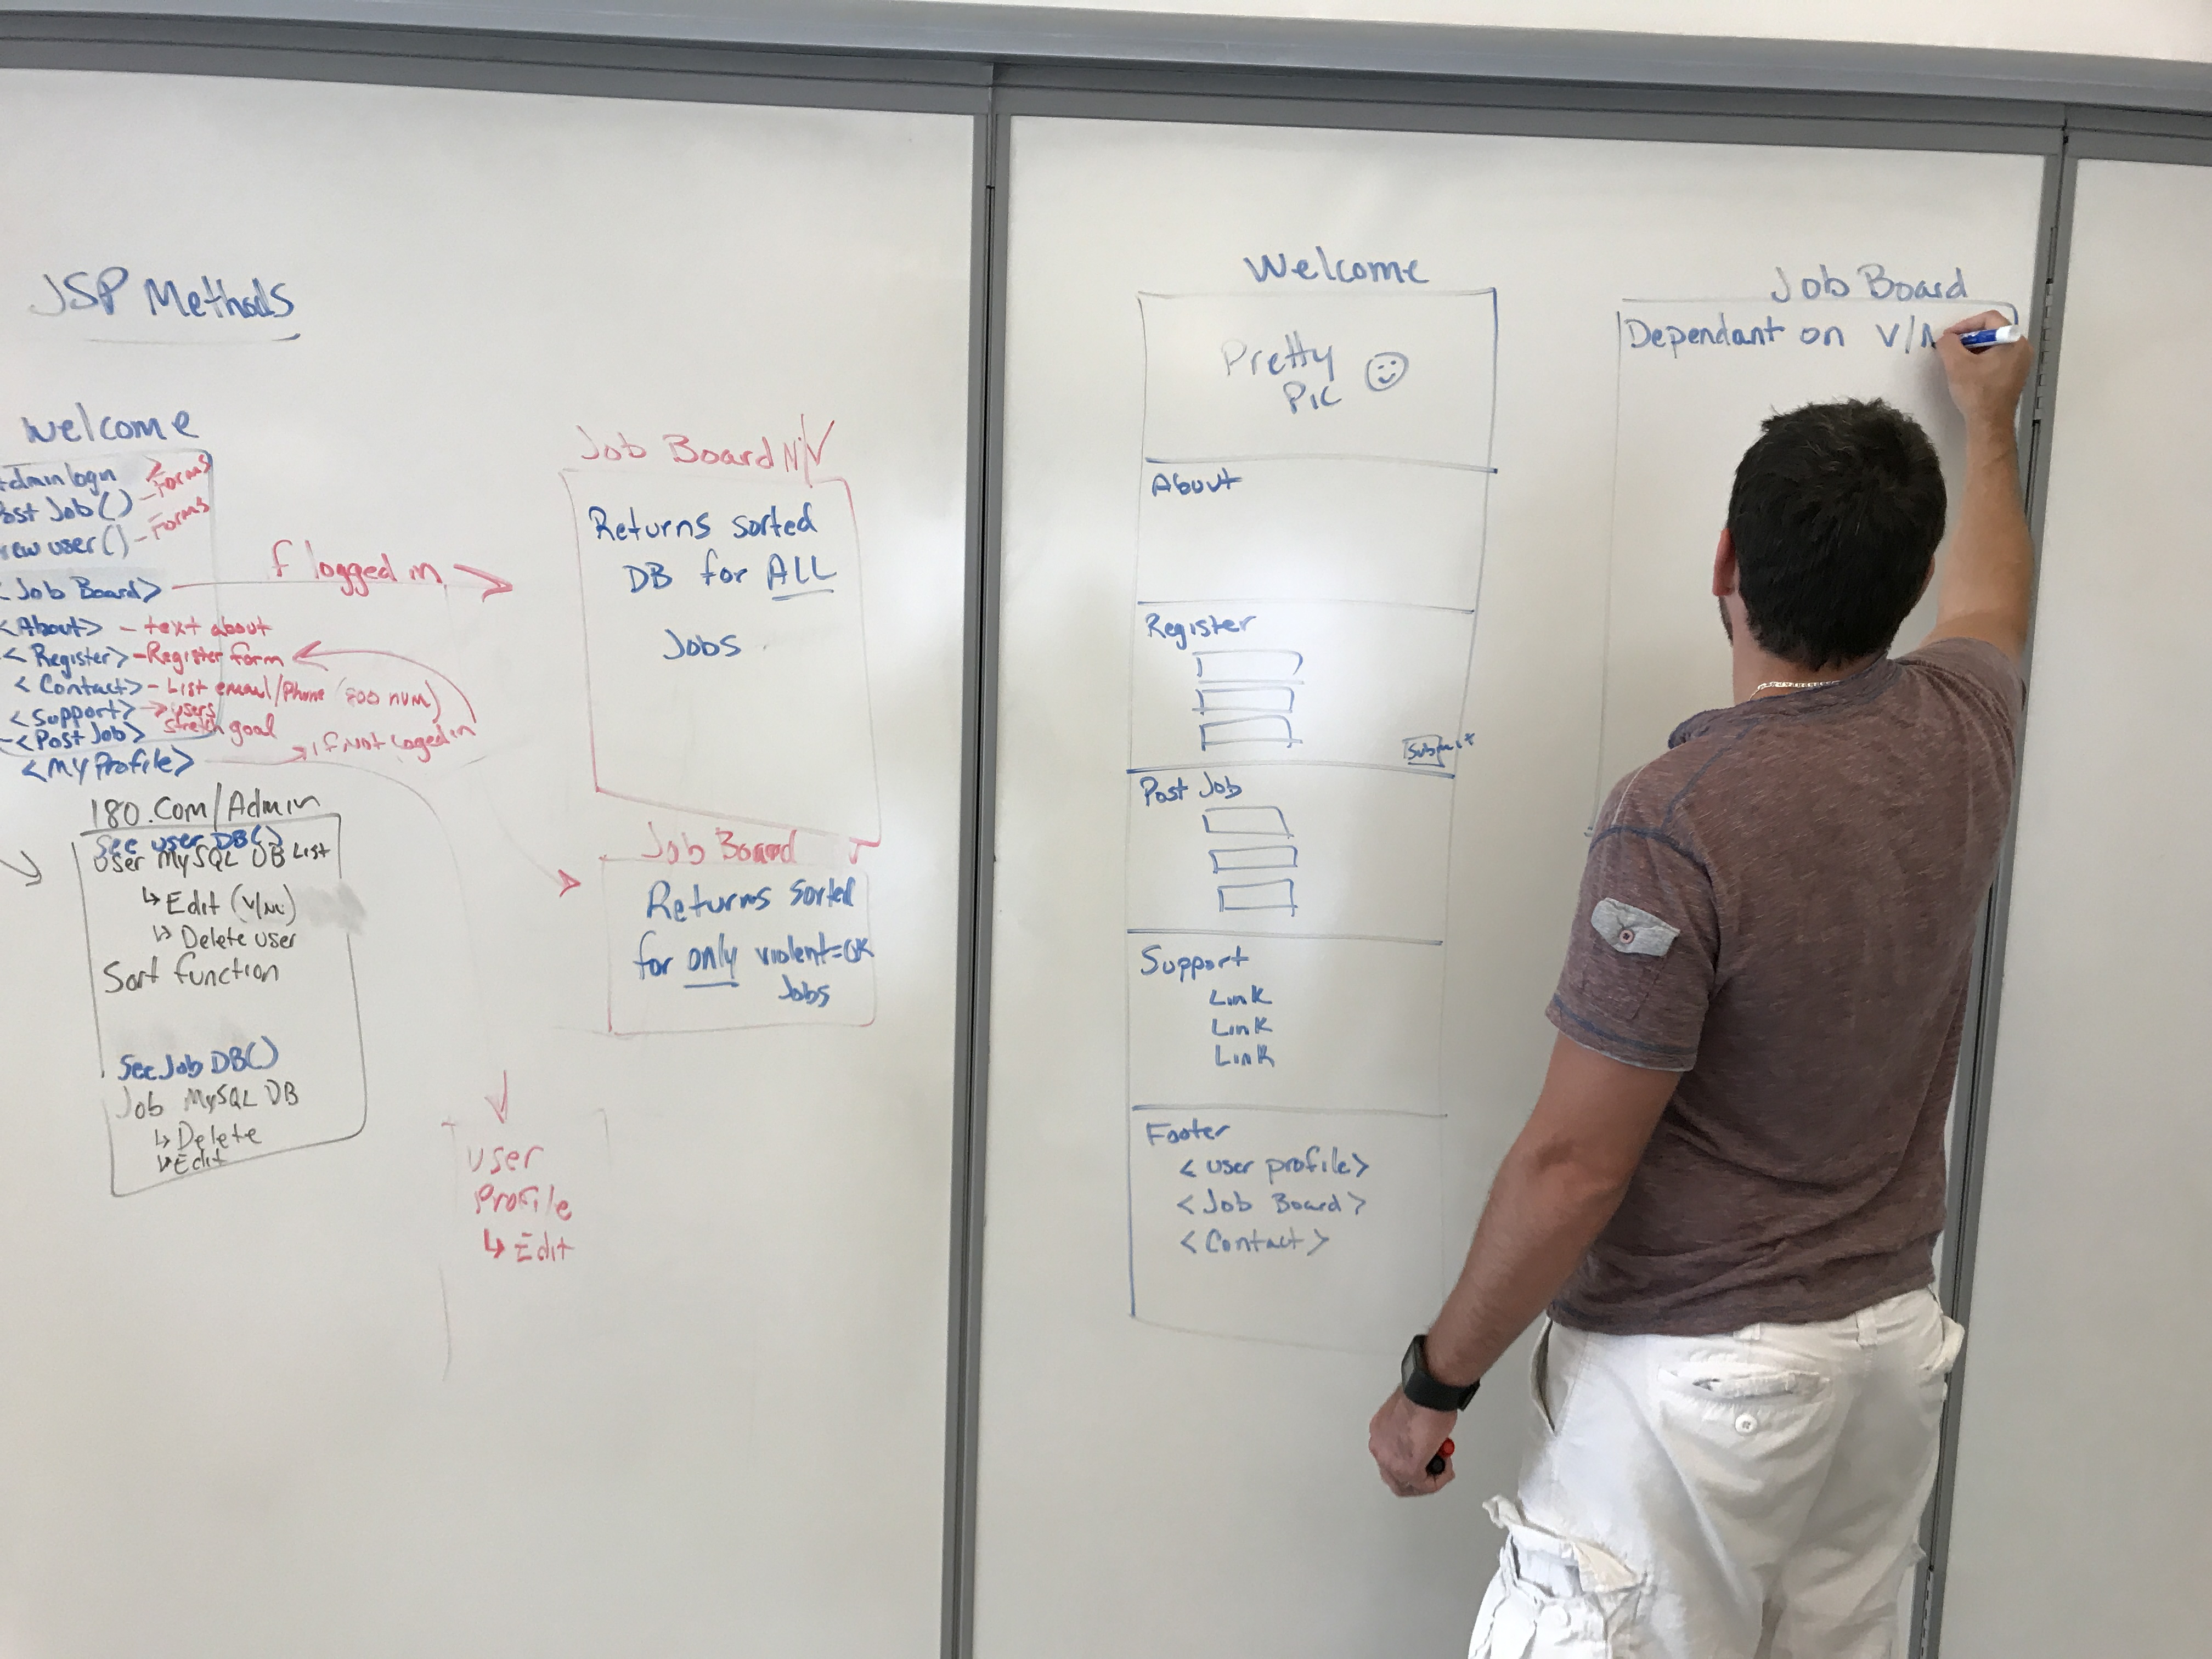 JSP Methods
Welcome
Admin login
Forms
Post Job() - Forms
new user()
<Job Board>
f logged in
<About> - text about
<Register> - Register form
<Contact> - List email/Phone (800 num)
<Support> → users
stretch goal
<Post Job>
if Not Loged in
<My Profile>
180.Com/Admin
See user DB()
User MySQL DB List
↳ Edit (V/NV)
↳ Delete user
Sort function
See Job DB()
Job MySQL DB
↳ Delete
↳ Edit
Job Board N/V
Returns sorted
DB for ALL
Jobs
Job Board V
Returns sorted
for only violent=OK
Jobs
User
Profile
↳ Edit
Welcome
Pretty
Pic
About
Register
Submit
Post Job
Support
Link
Link
Link
Footer
<user profile>
<Job Board>
<Contact>
Job Board
Dependant on V/N